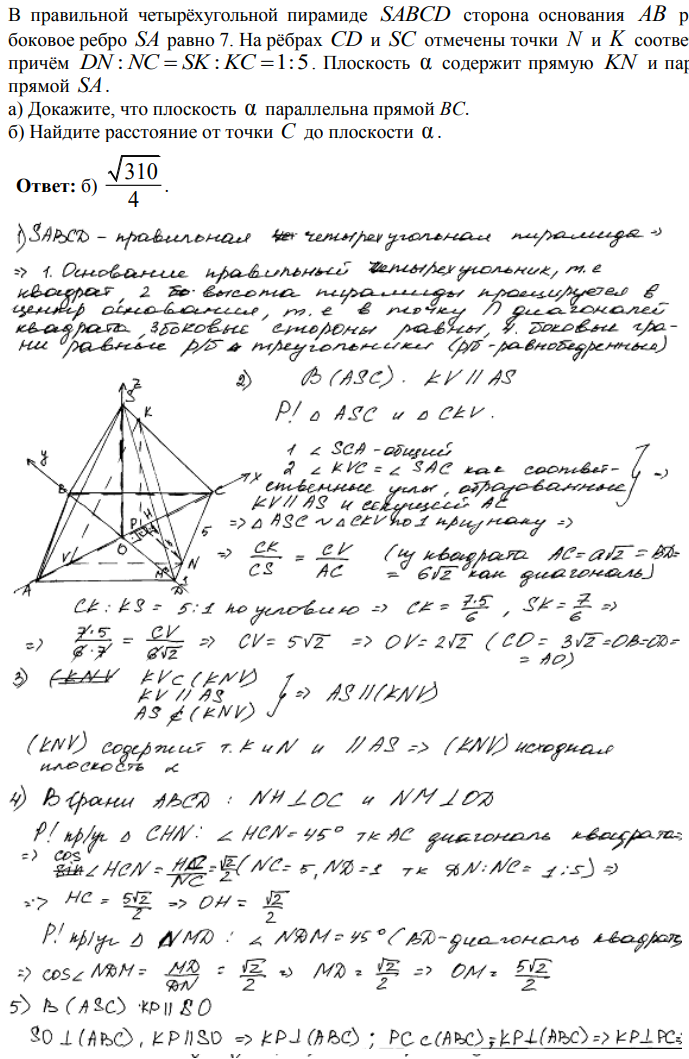 В правильной четырёхугольной пирамиде SABCD сторона основания AB р
боковое ребро SA равно 7. На рёбрах CD и SC отмечены точки N и K соотве
причём DN : NC = SK : KC = 1 : 5. Плоскость α содержит прямую KN и пар
прямой SA.
а) Докажите, что плоскость α параллельна прямой BC.
б) Найдите расстояние от точки C до плоскости α.
Ответ: б) √310/4.
1) SABCD – правильная четырехугольная пирамида ⇒
⇒ 1. Основание правильный четырехугольник, т.е
квадрат, 2 высота пирамиды проецируется в
центр основания, т.е в точку ∩ диагоналей
квадрата, 3 боковые стороны равны, 4. боковые гра-
ни равные р/б треугольники (р/б - равнобедренные)
2) В (ASC). KV || AS
Р! △ ASC и △ CKV.
1 ∠ SCA - общий
2 ∠ KVC = ∠ SAC как соответ-
ственные углы, образованные
KV || AS и секущей AC
⇒ △ ASC ~ △ CKV по 1 признаку ⇒
⇒ CK/CS = CV/AC (из квадрата AC = a√2 = BD =
= 6√2 как диагональ)
z
S
K
y
B
C
x
H
P
5
O
V
N
M
1
A
D
CK : KS = 5 : 1 по условию ⇒ CK = 7·5/6, SK = 7/6 ⇒
⇒ 7·5/6·7 = CV/6√2 ⇒ CV = 5√2 ⇒ OV = 2√2 (CO = 3√2 = OB = OD =
= AO)
3) (KNV KV ⊂ (KNV)
KV || AS
AS ⊄ (KNV)
⇒ AS || (KNV)
(KNV) содержит т. K и N и || AS ⇒ (KNV) исходная
плоскость α
4) В грани ABCD : NH ⊥ OC и NM ⊥ OD
Р! пр/уг △ CHN : ∠ HCN = 45° тк AC диагональ квадрата
⇒ cos ∠ HCN = HC/NC = √2/2 (NC = 5, ND = 1 тк DN : NC = 1 : 5) ⇒
⇒ HC = 5√2/2 ⇒ OH = √2/2
Р! пр/уг △ NMD : ∠ NDM = 45° (BD - диагональ квадрата)
⇒ cos ∠ NDM = MD/DN = √2/2 ⇒ MD = √2/2 ⇒ OM = 5√2/2
5) В (ASC) KP || SO
SO ⊥ (ABC), KP || SO ⇒ KP ⊥ (ABC) ; PC ⊂ (ABC) ; KP ⊥ (ABC) ⇒ KP ⊥ PC